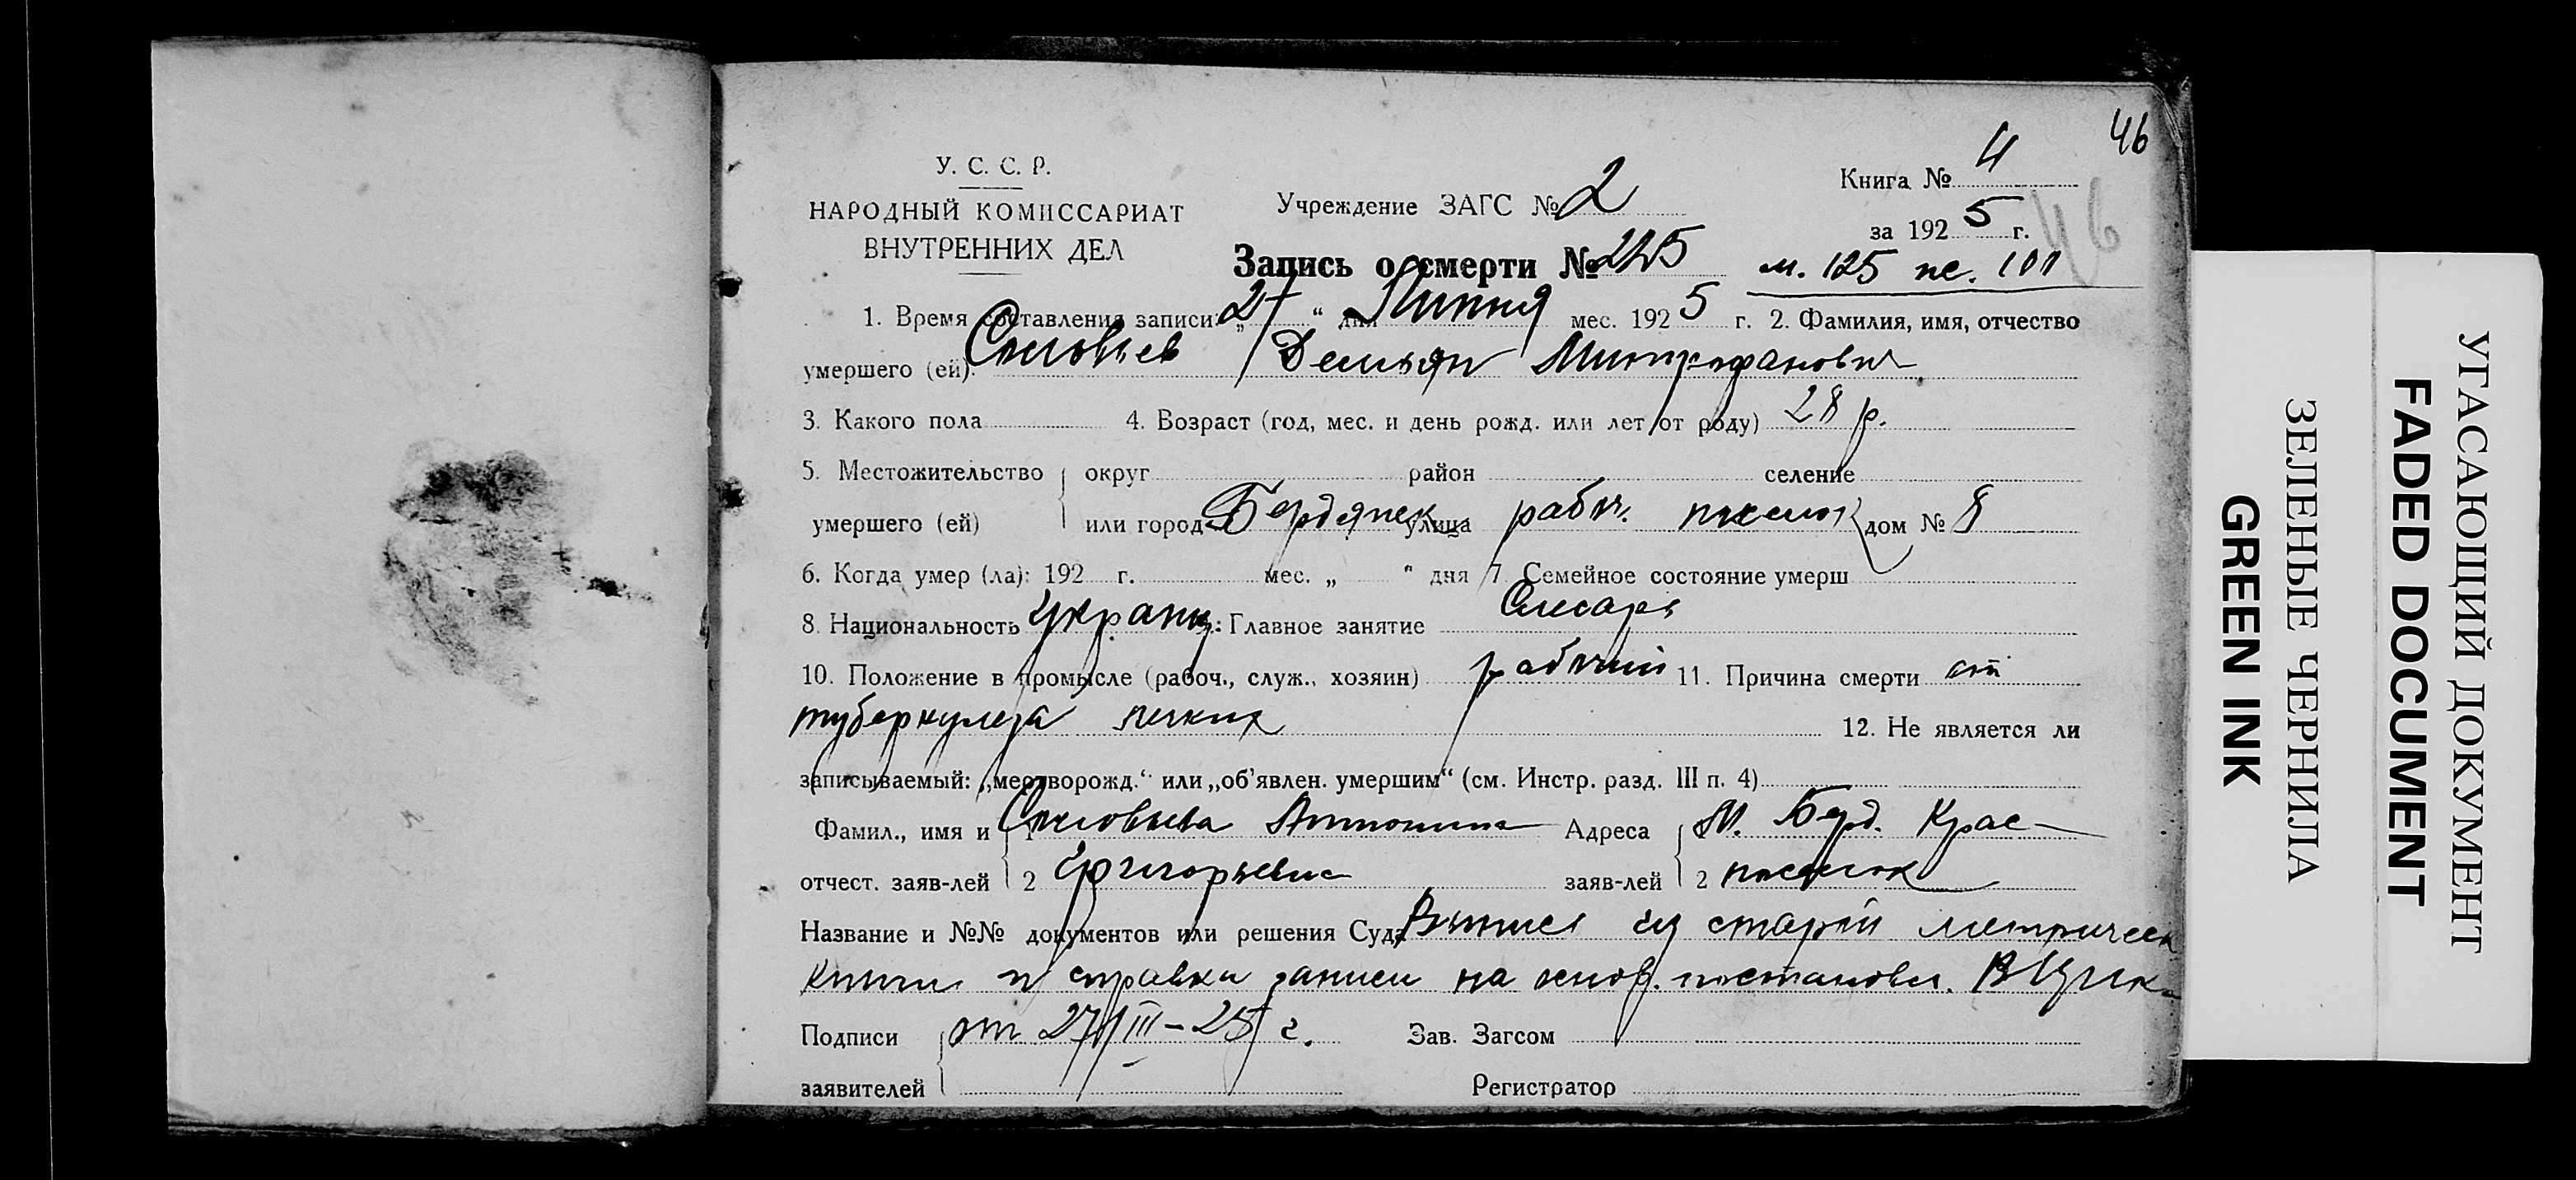 46
У. С. С. Р.
НАРОДНЫЙ КОМИССАРИАТ
ВНУТРЕННИХ ДЕЛ
Учреждение ЗАГС № 2
Книга № 4
за 192 5 г.
46
Запись о смерти № 225 м. 125 же. 101
1. Время составления записи: „ “ дня мес. 192 5 г. 2. Фамилия, имя, отчество
умершего (ей): Соловьев Демьян Митрофанович
3. Какого пола 4. Возраст (год, мес. и день рожд. или лет от роду) 28 р.
5. Местожительство округ район селение
умершего (ей) или город Бердянск улица рабоч. поселок дом № 8
6. Когда умер (ла): 192 г. мес. „ “ дня 7. Семейное состояние умерш
8. Национальность украинц.: Главное занятие Слесарь
10. Положение в промысле (рабоч., служ., хозяин) рабочий 11. Причина смерти от
туберкулеза легких 12. Не является ли
записываемый: „мертворожд.“ или „об’явлен. умершим“ (см. Инстр. разд. III п. 4)
Фамил., имя и 1 Соловьева Антонина Адреса 1 М. Берд. Крас
отчест. заяв-лей 2 Григорьевна заяв-лей 2 поселок
Название и №№ документов или решения Суда Выпись из старой метрическ
книги и справка записи на основ. постановл. ВЦИК
Подписи от 27/III–25 г. Зав. Загсом
заявителей Регистратор
УГАСАЮЩИЙ ДОКУМЕНТ
FADED DOCUMENT
ЗЕЛЕНЫЕ ЧЕРНИЛА
GREEN INK